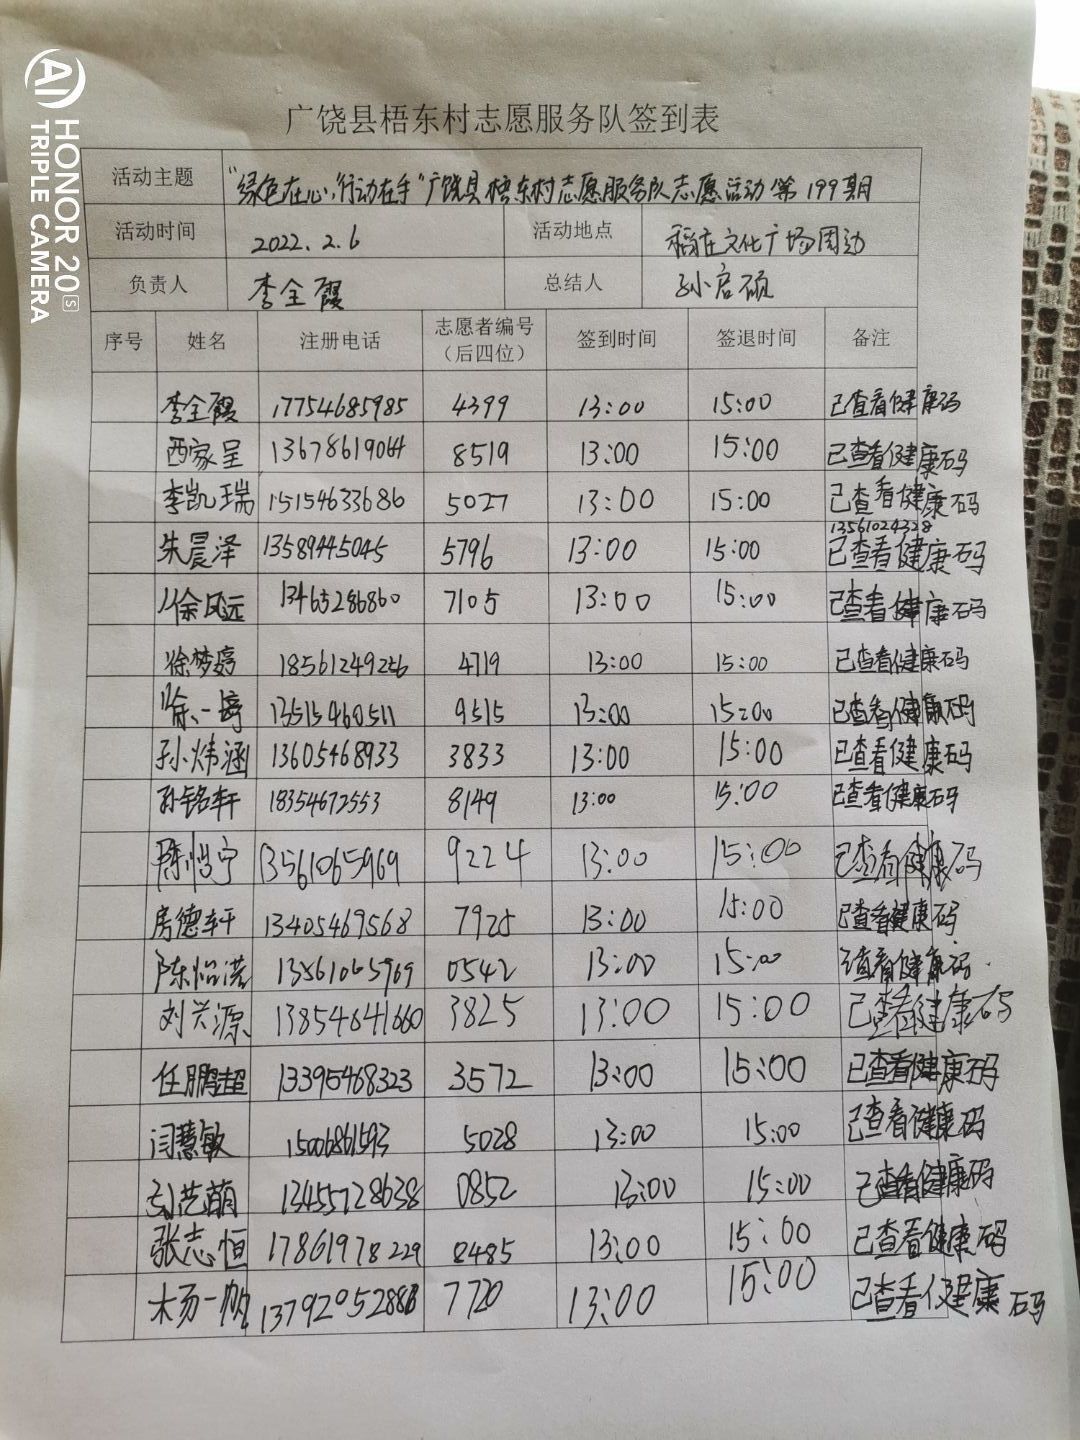 HONOR 20S
TRIPLE CAMERA
广饶县梧东村志愿服务队签到表
活动主题 "绿色在心,行动在手"广饶县梧东村志愿服务队志愿活动第199期
活动时间 2022.2.6 活动地点 稻庄文化广场周边
负责人 李全霞 总结人 孙启硕
序号 姓名 注册电话 志愿者编号（后四位） 签到时间 签退时间 备注
李全霞 17754685985 4399 13:00 15:00 已查看健康码
西家呈 13678619044 8519 13:00 15:00 已查看健康码
李凯瑞 15154633686 5027 13:00 15:00 已查看健康码
13561024328
朱晨泽 13589445045 5796 13:00 15:00 已查看健康码
徐风远 13465286860 7105 13:00 15:00 已查看健康码
徐梦婷 18561249226 4719 13:00 15:00 已查看健康码
徐一婷 13515460511 9515 13:00 15:00 已查看健康码
孙炜涵 13605468933 3833 13:00 15:00 已查看健康码
孙铭轩 18354672553 8149 13:00 15:00 已查看健康码
陈怡宁 13561065969 9224 13:00 15:00 已查看健康码
房德轩 13405469568 7925 13:00 15:00 已查看健康码
陈怡诺 13561065969 0542 13:00 15:00 查看健康码
刘兴源 13854641660 3825 13:00 15:00 已查看健康码
任鹏超 13395468323 3572 13:00 15:00 已查看健康码
闫慧敏 15006861593 5028 13:00 15:00 已查看健康码
刘艺萌 13455728638 0852 13:00 15:00 已查看健康码
张志恒 17861978229 8485 13:00 15:00 已查看健康码
杨一帆 7720 13:00 15:00 已查看健康码